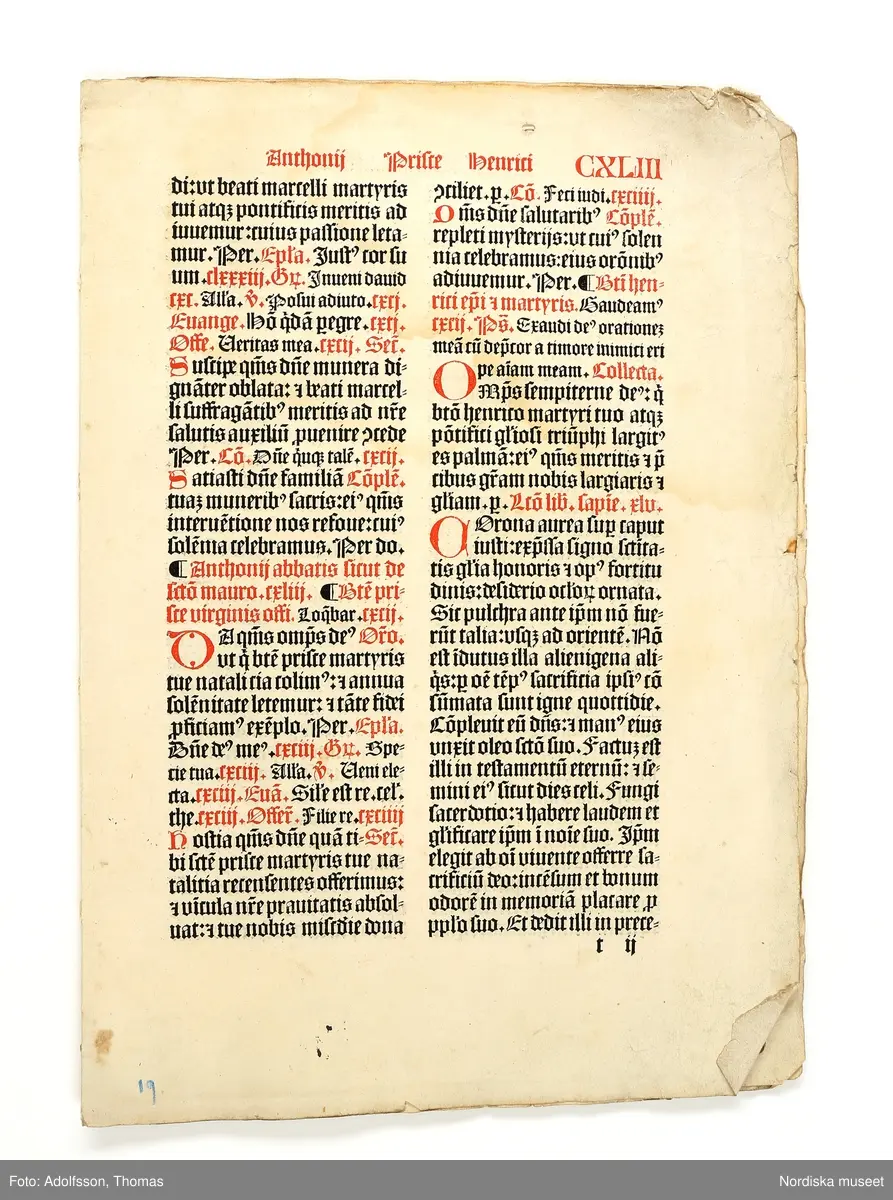 Anthonij Prisce Henrici CXLIII
di: ut beati marcelli martyris
tui atqꝫ pontificis meritis ad
iuuemur: cuius passione leta-
mur. Per. Epl'a. Justꝰ cor su
um. clxxxiij. Gꝝ. Inueni dauid
cxc. All'a. v̄. Posui adiuto. cxcj.
Euange. Hō q̄dā pegre. cxcj.
Offe. Ueritas mea. cxcij. Sec̄.
Suscipe q̄ms dn̄e munera di-
gnāter oblata: ⁊ beati marcel-
li suffragātibꝰ meritis ad nr̄e
salutis auxiliū ꝓuenire ꝯcede
Per. Cō. Dn̄e q̇nqꝫ talē. cxcij.
Satiasti dn̄e familiā Cōplē.
tuaꝫ muneribꝰ sacris: eiꝰ q̄ms
interuētione nos refoue: cuiꝰ
solēnia celebramus. Per do.
¶ Anthonij abbatis sicut de
sctō mauro. cxliij. ¶ Btē pri-
sce virginis offi. Loq̄bar. cxcij.
DA q̄ms omp̄s deꝰ Or̄o.
ut q̇ btē prisce martyris
tue natalicia colimꝰ: ⁊ annua
solēnitate letemur: ⁊ tāte fidei
ꝓficiamꝰ exēplo. Per. Epl'a.
Dn̄e deꝰ meꝰ. cxciij. Gꝝ. Spe-
cie tua. cxciij. All'a. v̄. Ueni ele-
cta. cxciij. Euā. Sil'e est re. cel'.
the. cxciij. Offer̄. Filie re. cxciiij
Hostia q̄ms dn̄e quā ti- Sec̄.
bi sctē prisce martyris tue na-
talitia recensentes offerimus:
⁊ vīcula nr̄e prauitatis absol-
uat: ⁊ tue nobis misc̄die dona
ꝯciliet. ꝑ. Cō. Feci iudi. cxciiij.
Om̄s dn̄e salutaribꝰ Cōplē.
repleti mysterijs: ut cuiꝰ solen
nia celebramus: eius orōnibꝰ
adiuuemur. Per. ¶ Bti hen-
rici ep̄i ⁊ martyris. Gaudeamꝰ
cxcij. Ps̄. Exaudi deꝰ orationeꝫ
meā cū dep̄cor a timore inimici eri
pe aīam meam. Collecta.
OMp̄s sempiterne deꝰ: q̇
btō henrico martyri tuo atqꝫ
pōtifici gl'iosi triūphi largitꝰ
es palmā: eiꝰ q̄ms meritis ⁊ p̄
cibus gr̄am nobis largiaris ⁊
gl'iam. ꝑ. Lcō lib. sapie. xlv.
COrona aurea suꝑ caput
iusti: exp̄ssa signo sc̄tita-
tis gl'ia honoris ⁊ opꝰ fortitu
dinis: desiderio ocl'oꝝ ornata.
Sic pulchra ante ip̄m nō fue-
rūt talia: usqꝫ ad orientē. Nō
est īdutus illa alienigena ali-
q̇s: ꝑ oē tēpꝰ sacrificia ipsiꝰ cō
sūmata sunt igne quottidie.
Cōpleuit eū dn̄s: ⁊ manꝰ eius
vnxit oleo sctō suo. Factuꝫ est
illi in testamentū eternū: ⁊ se-
mini eiꝰ sicut dies celi. Fungi
sacerdotio: ⁊ habere laudem et
gl'ificare ip̄m ī noīe suo. Ip̄m
elegit ab oī viuente offerre sa-
crificiū deo: incēsum et bonum
odorē in memoriā placare ꝓ
ppl'o suo. Et dedit illi in prece-
t ij
19
Foto: Adolfsson, Thomas
Nordiska museet